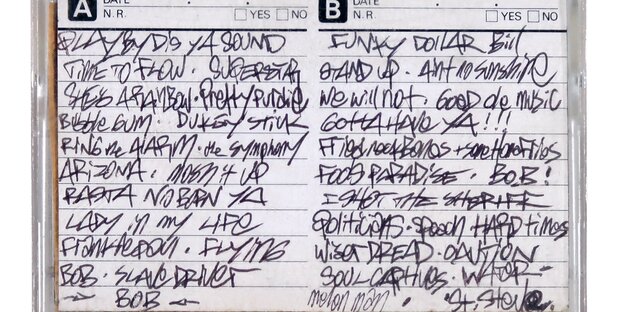 A
N.R. YES NO
SOUND
TIME TO FLOW · SUPERSTAR
SHE'S A RAINBOW · Pretty Purdie
BUBBLE GUM · DUKEY STICK
RING the ALARM · the symphony
ARIZONA · it UP
RASTA NO BORN YA
LADY in my LIFE
FLYING
BOB · SLAVE DRIVER
BOB
B
N.R. YES NO
FUNKY DOLLAR Bill
STAND UP · Aint no sunshine
We will not · GOOD ole music
GOTTA HAVE YA!!!
Fried neckbones + some Home Fries
FOOLS PARADISE · BOB!
I SHOT THE SHERIFF
HARD times
Wiser DREAD · CAUTION
SOUL CAPTIVES · WATER-
melon man · St. Steve